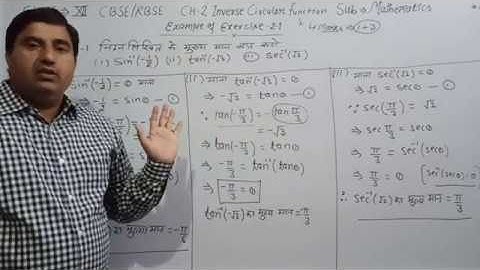 XII CBSE/RBSE CH-2 Inverse Circular function Sub → Mathematics
Example of Exercise 2.1
निम्नलिखित के मुख्य मान ज्ञात करो
(i) Sin⁻¹(-1/2) (ii) tan⁻¹(-√3) (iii) sec⁻¹(√2)
(-1/2) = θ माना
-1/2 = sinθ — ①
मुख्य मान = -π/6
(ii) माना tan⁻¹(-√3) = θ
⇒ -√3 = tanθ — ①
∴ tan(-π/3) = -tan π/3
= -√3
⇒ tan(-π/3) = tanθ
⇒ -π/3 = tan⁻¹(tanθ)
⇒ -π/3 = θ
tan⁻¹(-√3) का मुख्य मान = π/3
(iii) माना sec⁻¹(√2) = θ
⇒ √2 = secθ — ①
∵ sec(π/3) = √3
⇒ sec π/3 = secθ
⇒ π/3 = sec⁻¹(secθ)
⇒ π/3 = θ [sec⁻¹(secθ) = θ]
∴ sec⁻¹(√2) का मुख्य मान = π/3